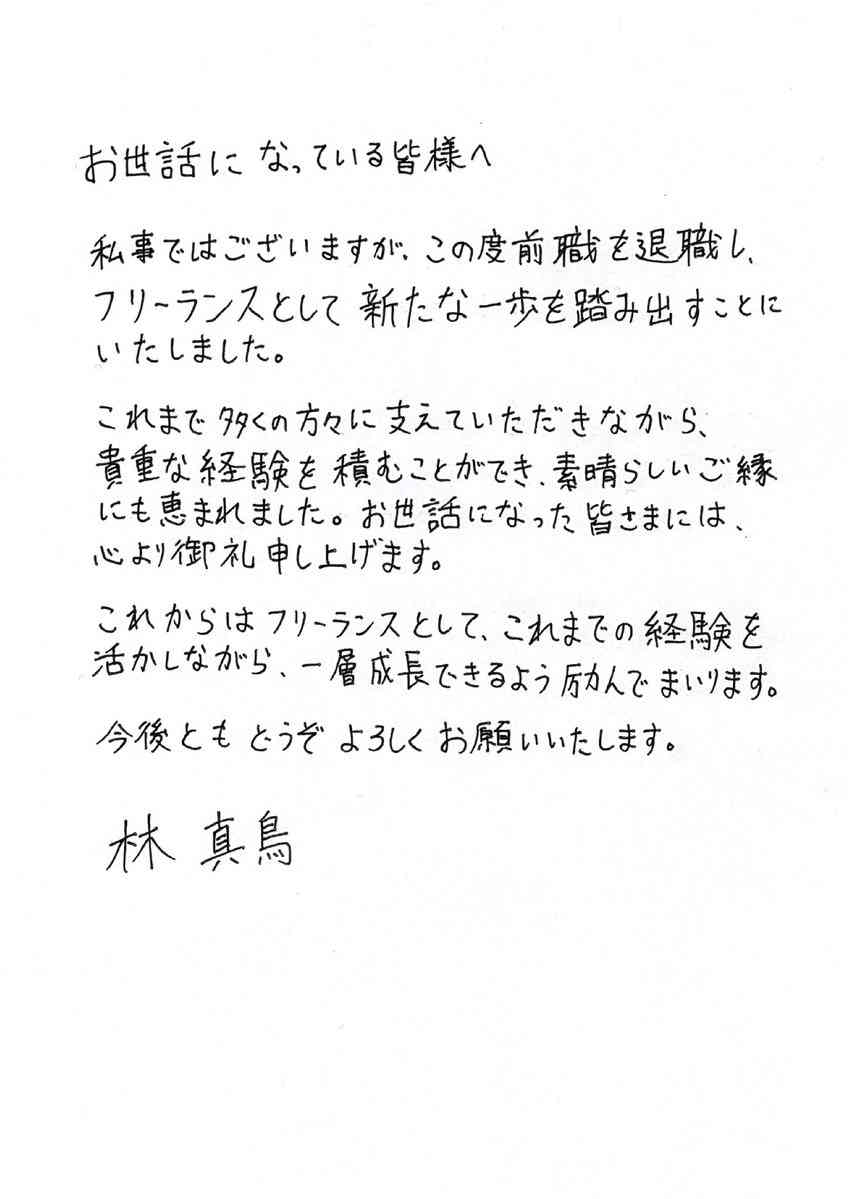 お世話になっている皆様へ
私事ではございますが、この度前職を退職し、
フリーランスとして新たな一歩を踏み出すことに
いたしました。
これまで多くの方々に支えていただきながら、
貴重な経験を積むことができ、素晴らしいご縁
にも恵まれました。お世話になった皆さまには、
心より御礼申し上げます。
これからはフリーランスとして、これまでの経験を
活かしながら、一層成長できるよう励んでまいります。
今後ともどうぞよろしくお願いいたします。
林 真鳥